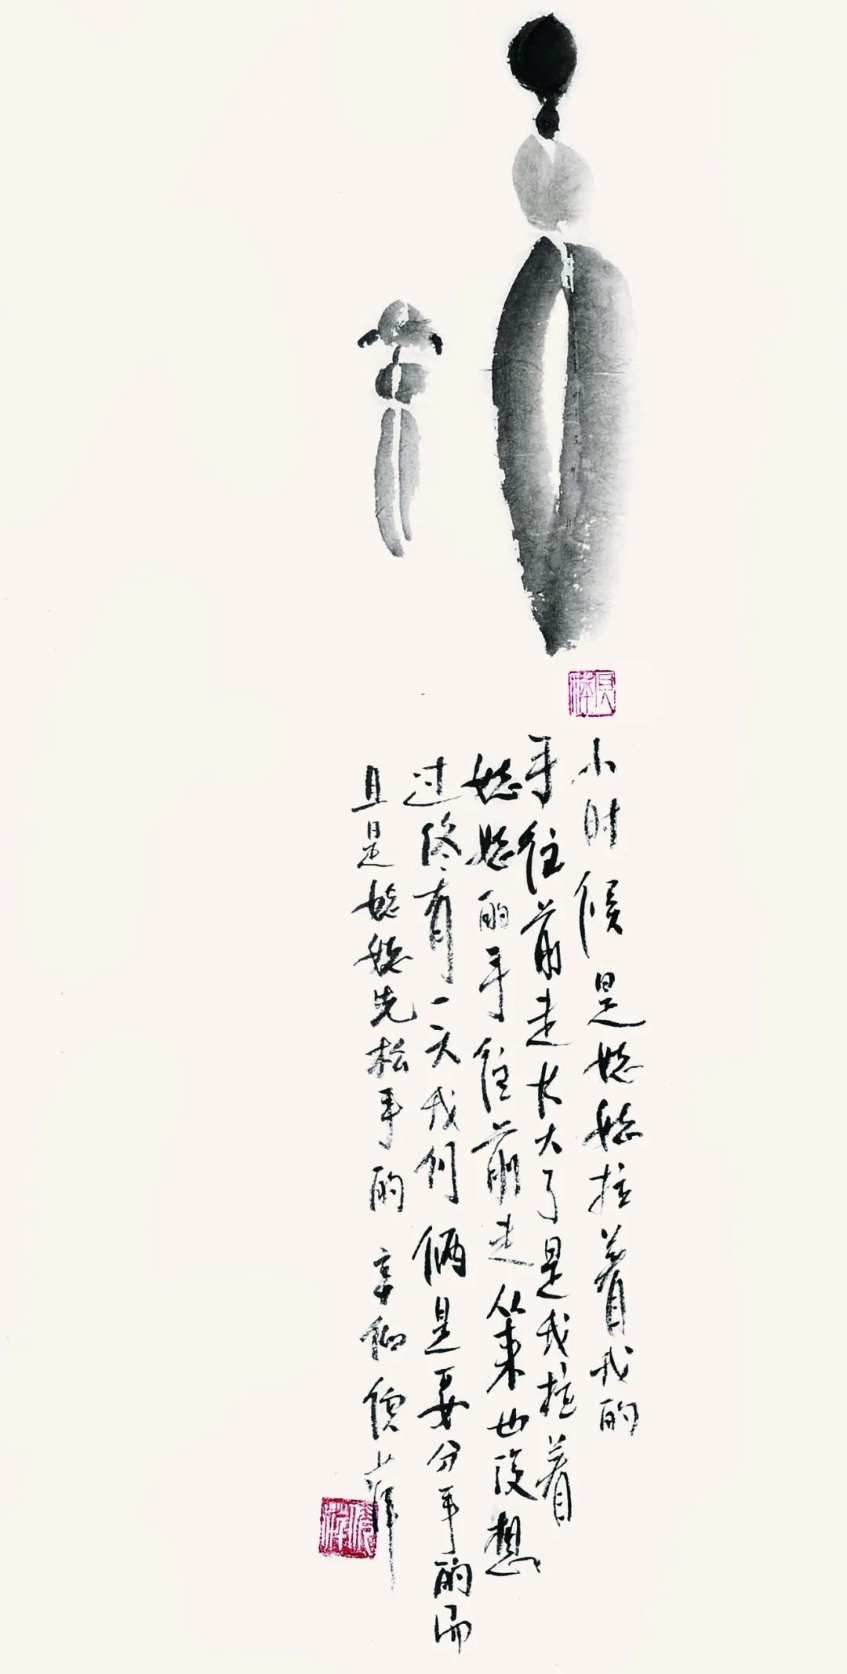 小时候是媽媽拉着我的
手往前走长大了是我拉着
媽媽的手往前走从来也没想
过终有一天我们俩是要分手的而
且是媽媽先松手的 辛卯